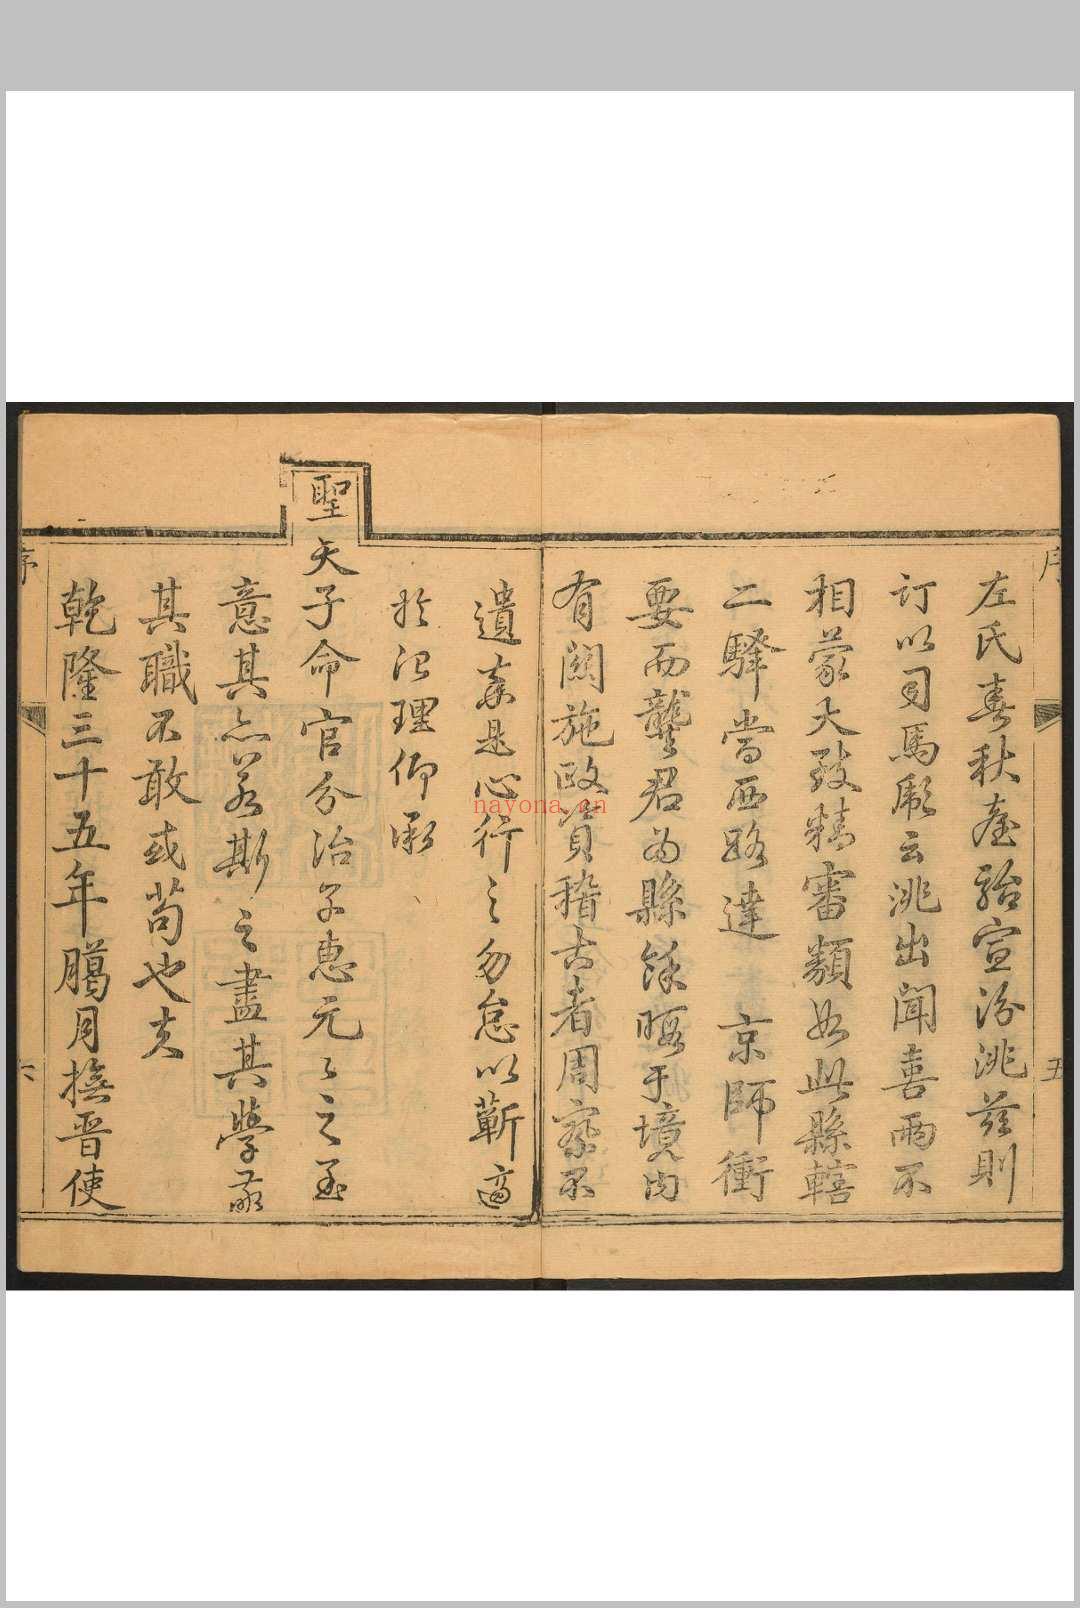 左氏春秋臺駘宣汾洮茲則
訂以司馬彪云洮出聞喜兩不
相蒙大致精審類如此縣轄
二驛當西路達京師衝
要而龔君為縣餘暇于境内
有關施政資稽古者周察不
遺奉是心行之勿怠以蘄適
於治理仰承
聖天子命官分治子惠元之至
意其亦若斯之盡其學敬
其職不敢或苟也夫
乾隆三十五年臈月撫晋使
序
五
序
六
nayona.cn